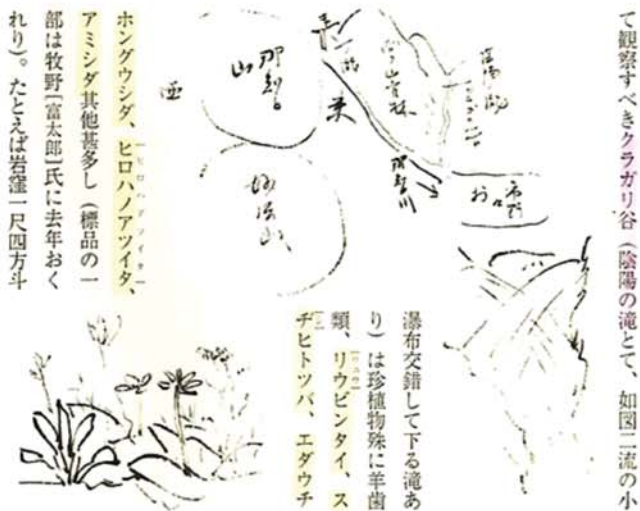 て観察すべきクラガリ谷（陰陽の滝とて、如図二流の小
瀑布交錯して下る滝あ
り）は珍植物殊に羊歯
類、リウビンタイ、ス
ヂヒトツバ、エダウチ
ホングウシダ、ヒロハノアツイタ、
アミシダ其他甚多し（標品の一
部は牧野［富太郎］氏に去年おく
れり）。たとえば岩窪一尺四方斗
陰陽滝
那智山
妙法山
那智川
西